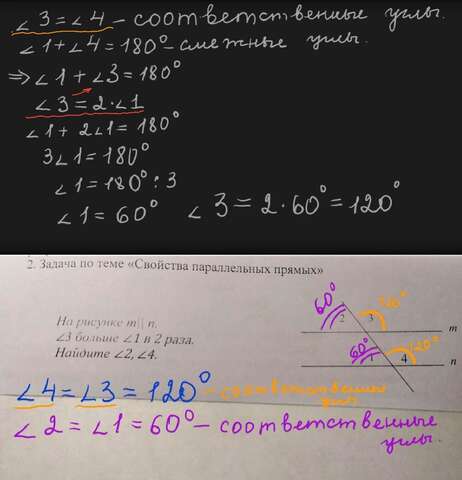 ∠3=∠4 – соответственные углы.
∠1+∠4=180° – смежные углы.
⇒∠1+∠3=180°
∠3=2·∠1
∠1+2∠1=180°
3∠1=180°
∠1=180°:3
∠1=60° ∠3=2·60°=120°
2. Задача по теме «Свойства параллельных прямых»
На рисунке m || n.
∠3 больше ∠1 в 2 раза.
Найдите ∠2, ∠4.
60° 120°
2 3 m
60° 120°
1 4 n
∠4=∠3=120° – соответственные углы
∠2=∠1=60° – соответственные
углы.